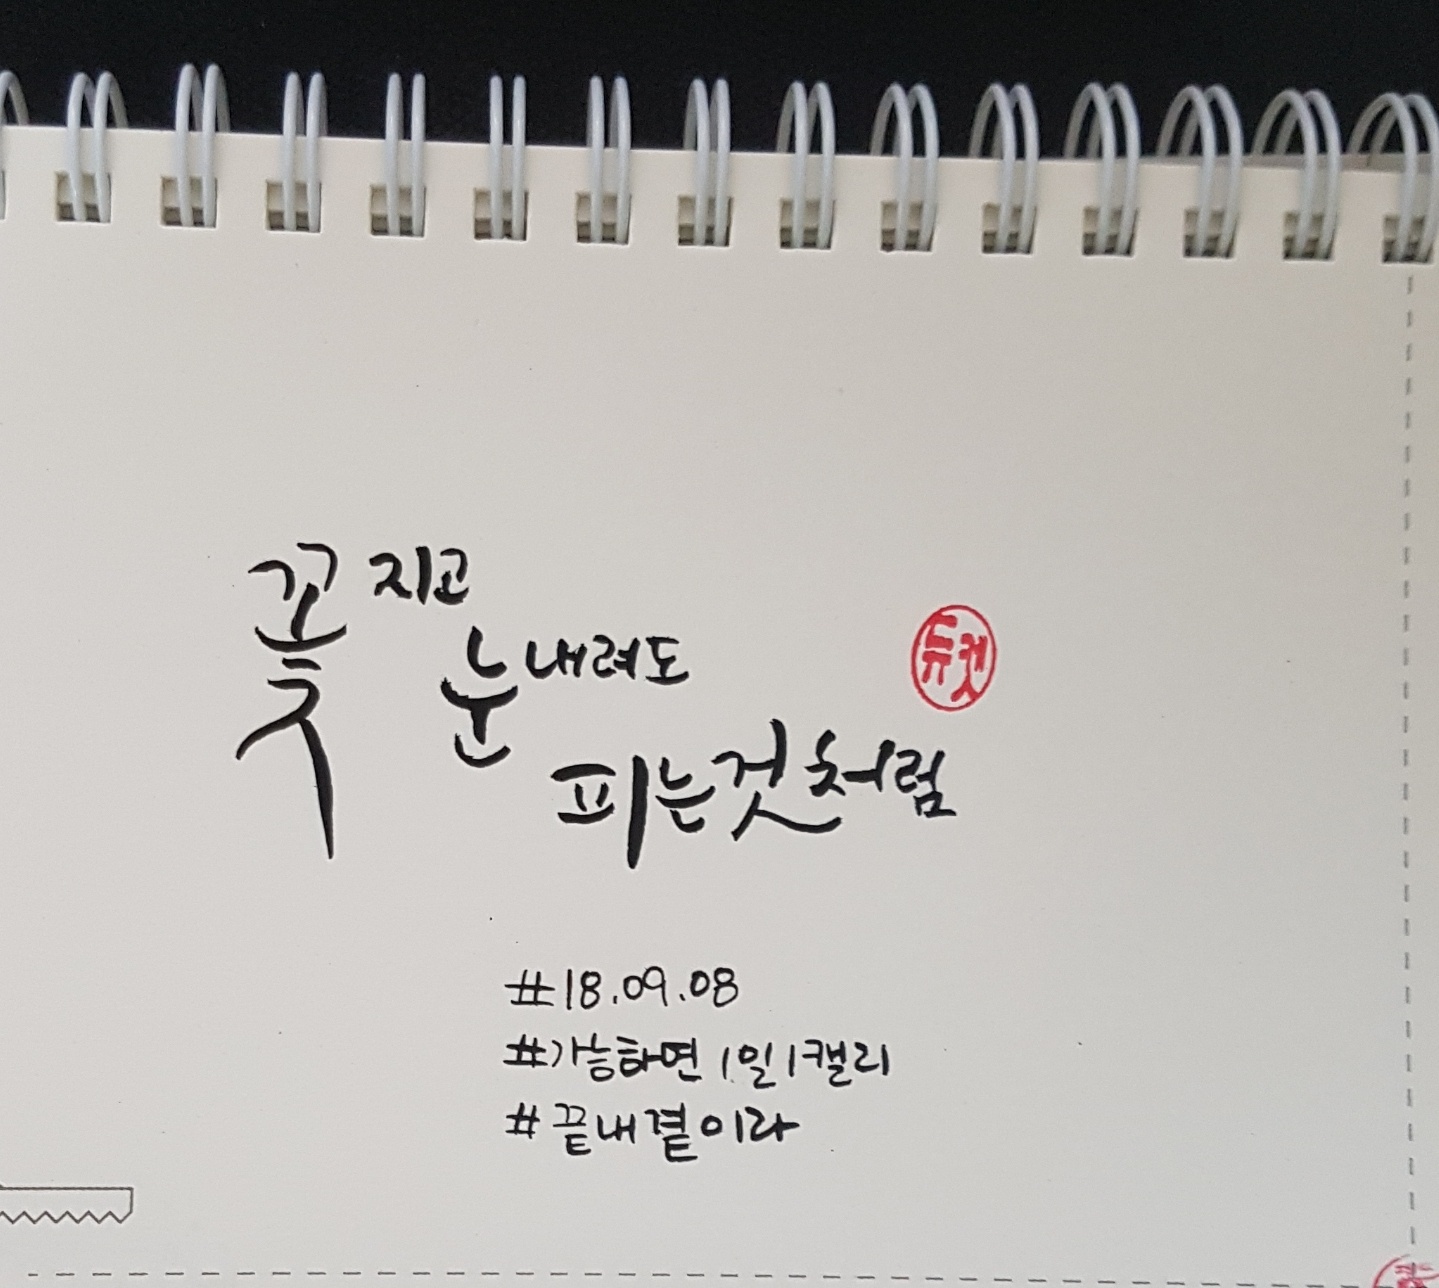 꽃 지고
눈 내려도
피는것처럼
듀켓
#18.09.08
#가능하면 1일1캘리
#끝내곁이라